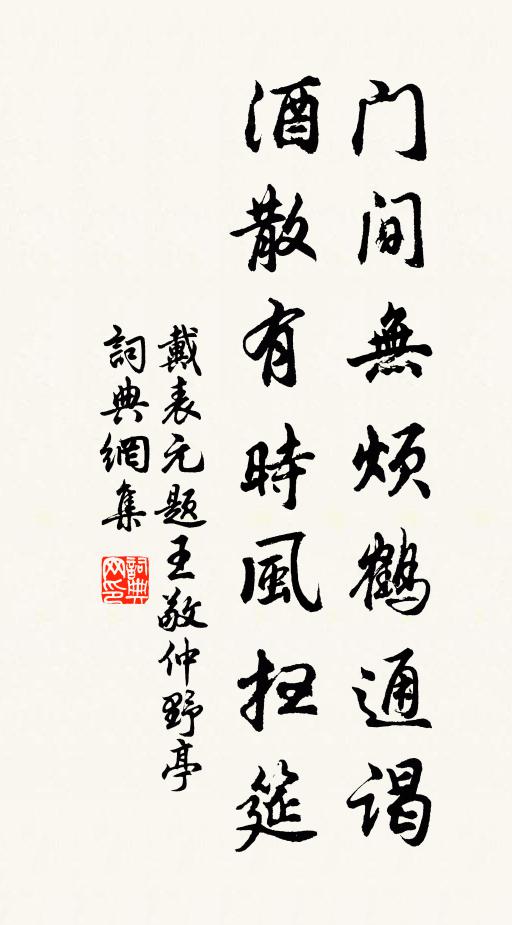 门间無烦鶴通谒
酒散有時風扫筵
戴表元题王敬仲野亭
詞典網集
詞典網印